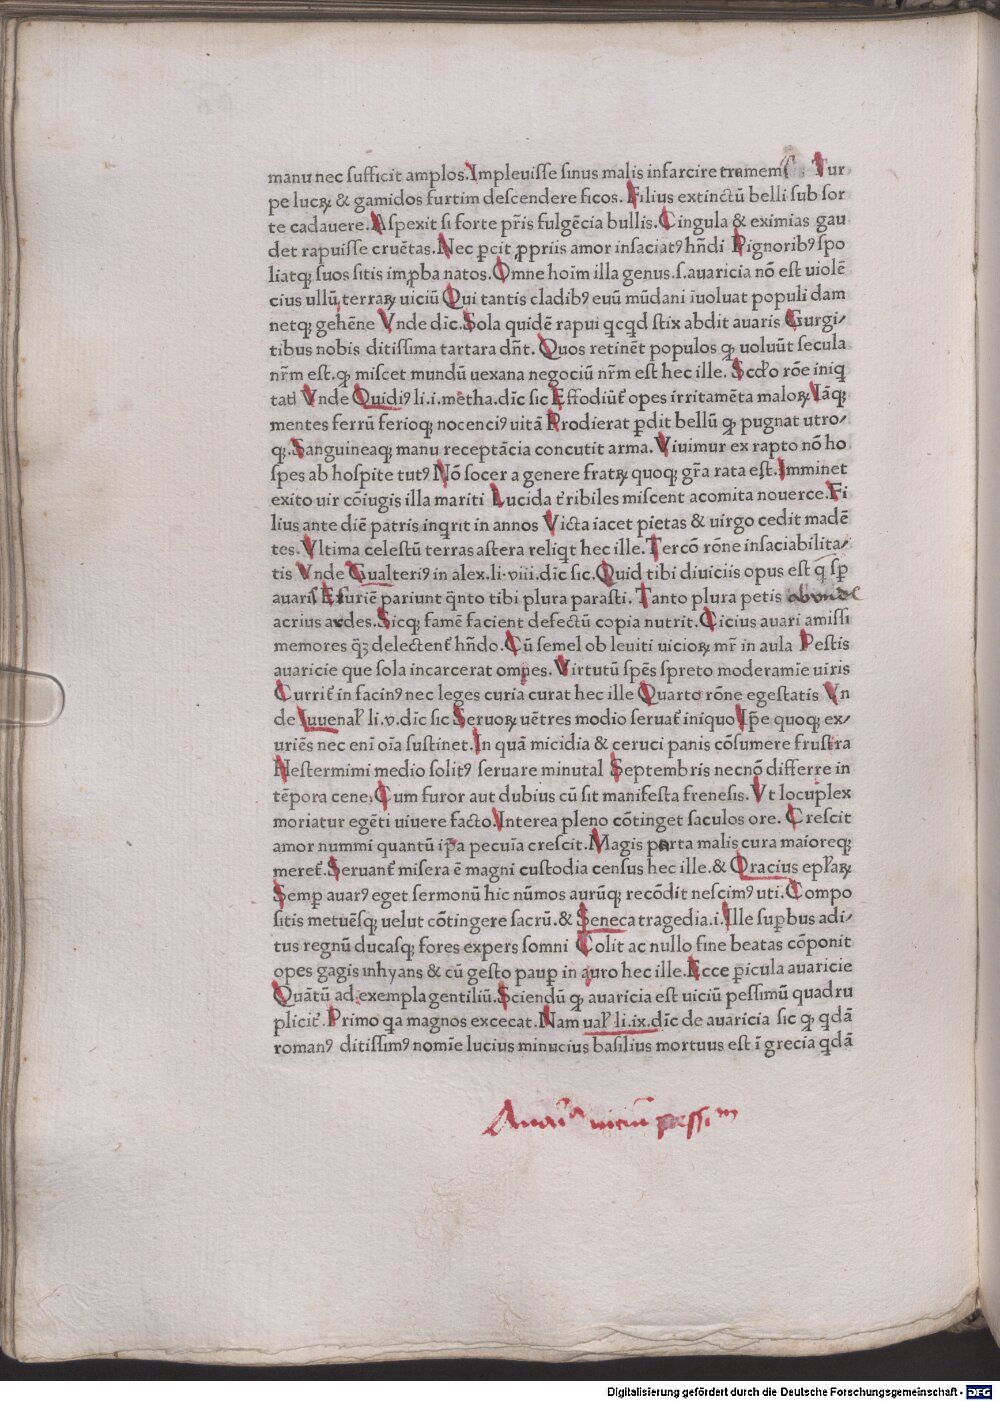 manu nec sufficit amplos.Impleuisse sinus malis infarcire tramemſ Tur
pe lucꝝ & gamidos furtim descendere ficos. Filius extinctū belli sub sor
te cadauere.Aspexit si forte pr̄is fulgēcia bullis.Cingula & eximias gau
det rapuisse cruētas.Nec ꝑcit ꝓpriis amor insaciatꝰ hn̄di Pignoribꝰ spo
liatqꝫ suos sitis imꝓba natos.Omne hoīm illa genus.s.auaricia nō est uiolē
cius ullū terraꝝ uiciū Qui tantis cladibꝰ euū mūdani īuoluat populi dam
netqꝫ gehēne Vnde dic.Sola quidē rapui qcqd stix abdit auaris Gurgi/
tibus nobis ditissima tartara dn̄t. Quos retinēt populos qꝫ uoluūt secula
nr̄m est.qꝫ miscet mundū uexana negociū nr̄m est hec ille. Scd̄o rōe iniq
tatꝭ Vnde Quidiꝰ li.i.metha.dīc sic Effodiūt̄ opes irritamēta maloꝝ.Iāqꝫ
mentes ferrū ferioqꝫ nocenciꝰ uitā Prodierat ꝑdit bellū qꝫ pugnat utro/
qꝫ.Sanguineaqꝫ manu receptācia concutit arma. Viuimur ex rapto nō ho
spes ab hospite tutꝰ Nō socer a genere fratꝝ quoqꝫ gr̄a rata est.Imminet
exito uir cōiugis illa mariti Lucida t̄ribiles miscent acomita nouerce.Fi
lius ante diē patris inqrit in annos Victa iacet pietas & uirgo cedit madē
tes.Vltima celestū terras astera reliqt hec ille.Tercō rōne insaciabilita/
tis Vnde Gualteriꝰ in alex.li.viii.dīc sic.Quid tibi diuiciis opus est q̄ sꝑ
auarisſ Esuriē pariunt qnto tibi plura parasti. Tanto plura petis
acrius ardes.Sicqꝫ famē facient defectū copia nutrit.Cicius auari amissi
memores qꝫ delectent̄ hn̄do.Cū semel ob leuiti uicioꝝ mr̄ in aula Pestis
auaricie que sola incarcerat ompes.Virtutū spēs spreto moderamīe uiris
Currit̄ in facinꝰ nec leges curia curat hec ille Quarto rōne egestatis Vn
de Iuuenal̄ li.v.dīc sic Seruoꝝ uētres modio seruat̄ iniquo Ip̄e quoqꝫ ex/
uriēs nec enī oīa sustinet.In quā micidia & ceruci panis cōsumere frustra
Nestermimi medio solitꝰ seruare minutal Septembris necnō differre in
tēpora cene.Cum furor aut dubius cū sit manifesta frenesis.Vt locuplex
moriatur egēti uiuere facto.Interea pleno cōtinget saculos ore. Crescit
amor nummi quantū ip̄a pecuīa crescit.Magis parta malis cura maioreqꝫ
meret̄.Seruant̄ misera ē magni custodia census hec ille.& Oracius epl̄aꝝ
Semꝑ auarꝰ eget sermonū hic nūmos aurūqꝫ recōdit nescimꝰ uti.Compo
sitis metuēsqꝫ uelut cōtingere sacrū.& Seneca tragedia.i.Ille suꝑbus adi/
tus regnū ducasqꝫ fores expers somni Colit ac nullo fine beatas cōponit
opes gagis inhyans & cū gesto pauꝑ in auro hec ille.Ecce ꝑicula auaricie
Quātū ad exempla gentiliū.Sciendū qꝫ auaricia est uiciū pessimū quadru
plicit̄.Primo qa magnos excecat.Nam ual̄ li.ix.dīc de auaricia sic qꝫ qdā
romanꝰ ditissimꝰ nomīe lucius minucius basilius mortuus est ī grecia qdā
Auaīa uiciū pessim
Digitalisierung gefördert durch die Deutsche Forschungsgemeinschaft - DFG